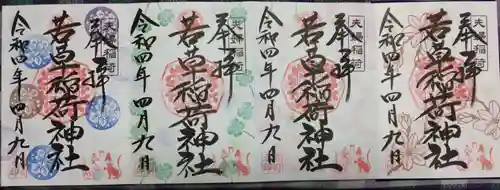 夫婦稲荷
奉拝
若草稲荷神社
令和四年四月九日
夫婦稲荷
奉拝
若草稲荷神社
令和四年四月九日
夫婦稲荷
奉拝
若草稲荷神社
令和四年四月九日
夫婦稲荷
奉拝
若草稲荷神社
令和四年四月九日